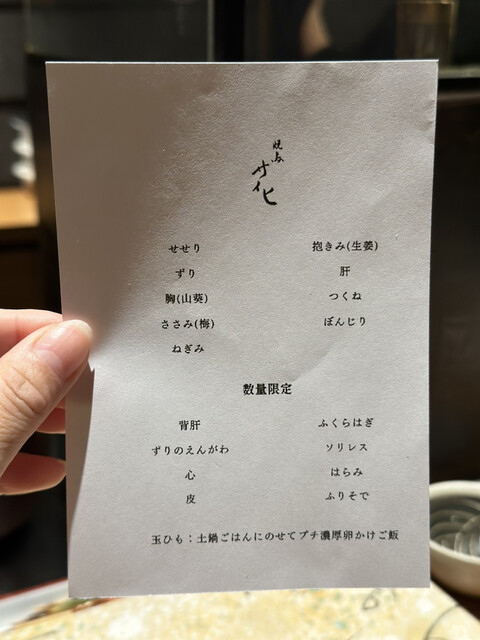 焼鳥
サイヒ
せせり
ずり
胸(山葵)
ささみ(梅)
ねぎみ
抱きみ(生姜)
肝
つくね
ぼんじり
数量限定
背肝
ずりのえんがわ
心
皮
ふくらはぎ
ソリレス
はらみ
ふりそで
玉ひも：土鍋ごはんにのせてプチ濃厚卵かけご飯